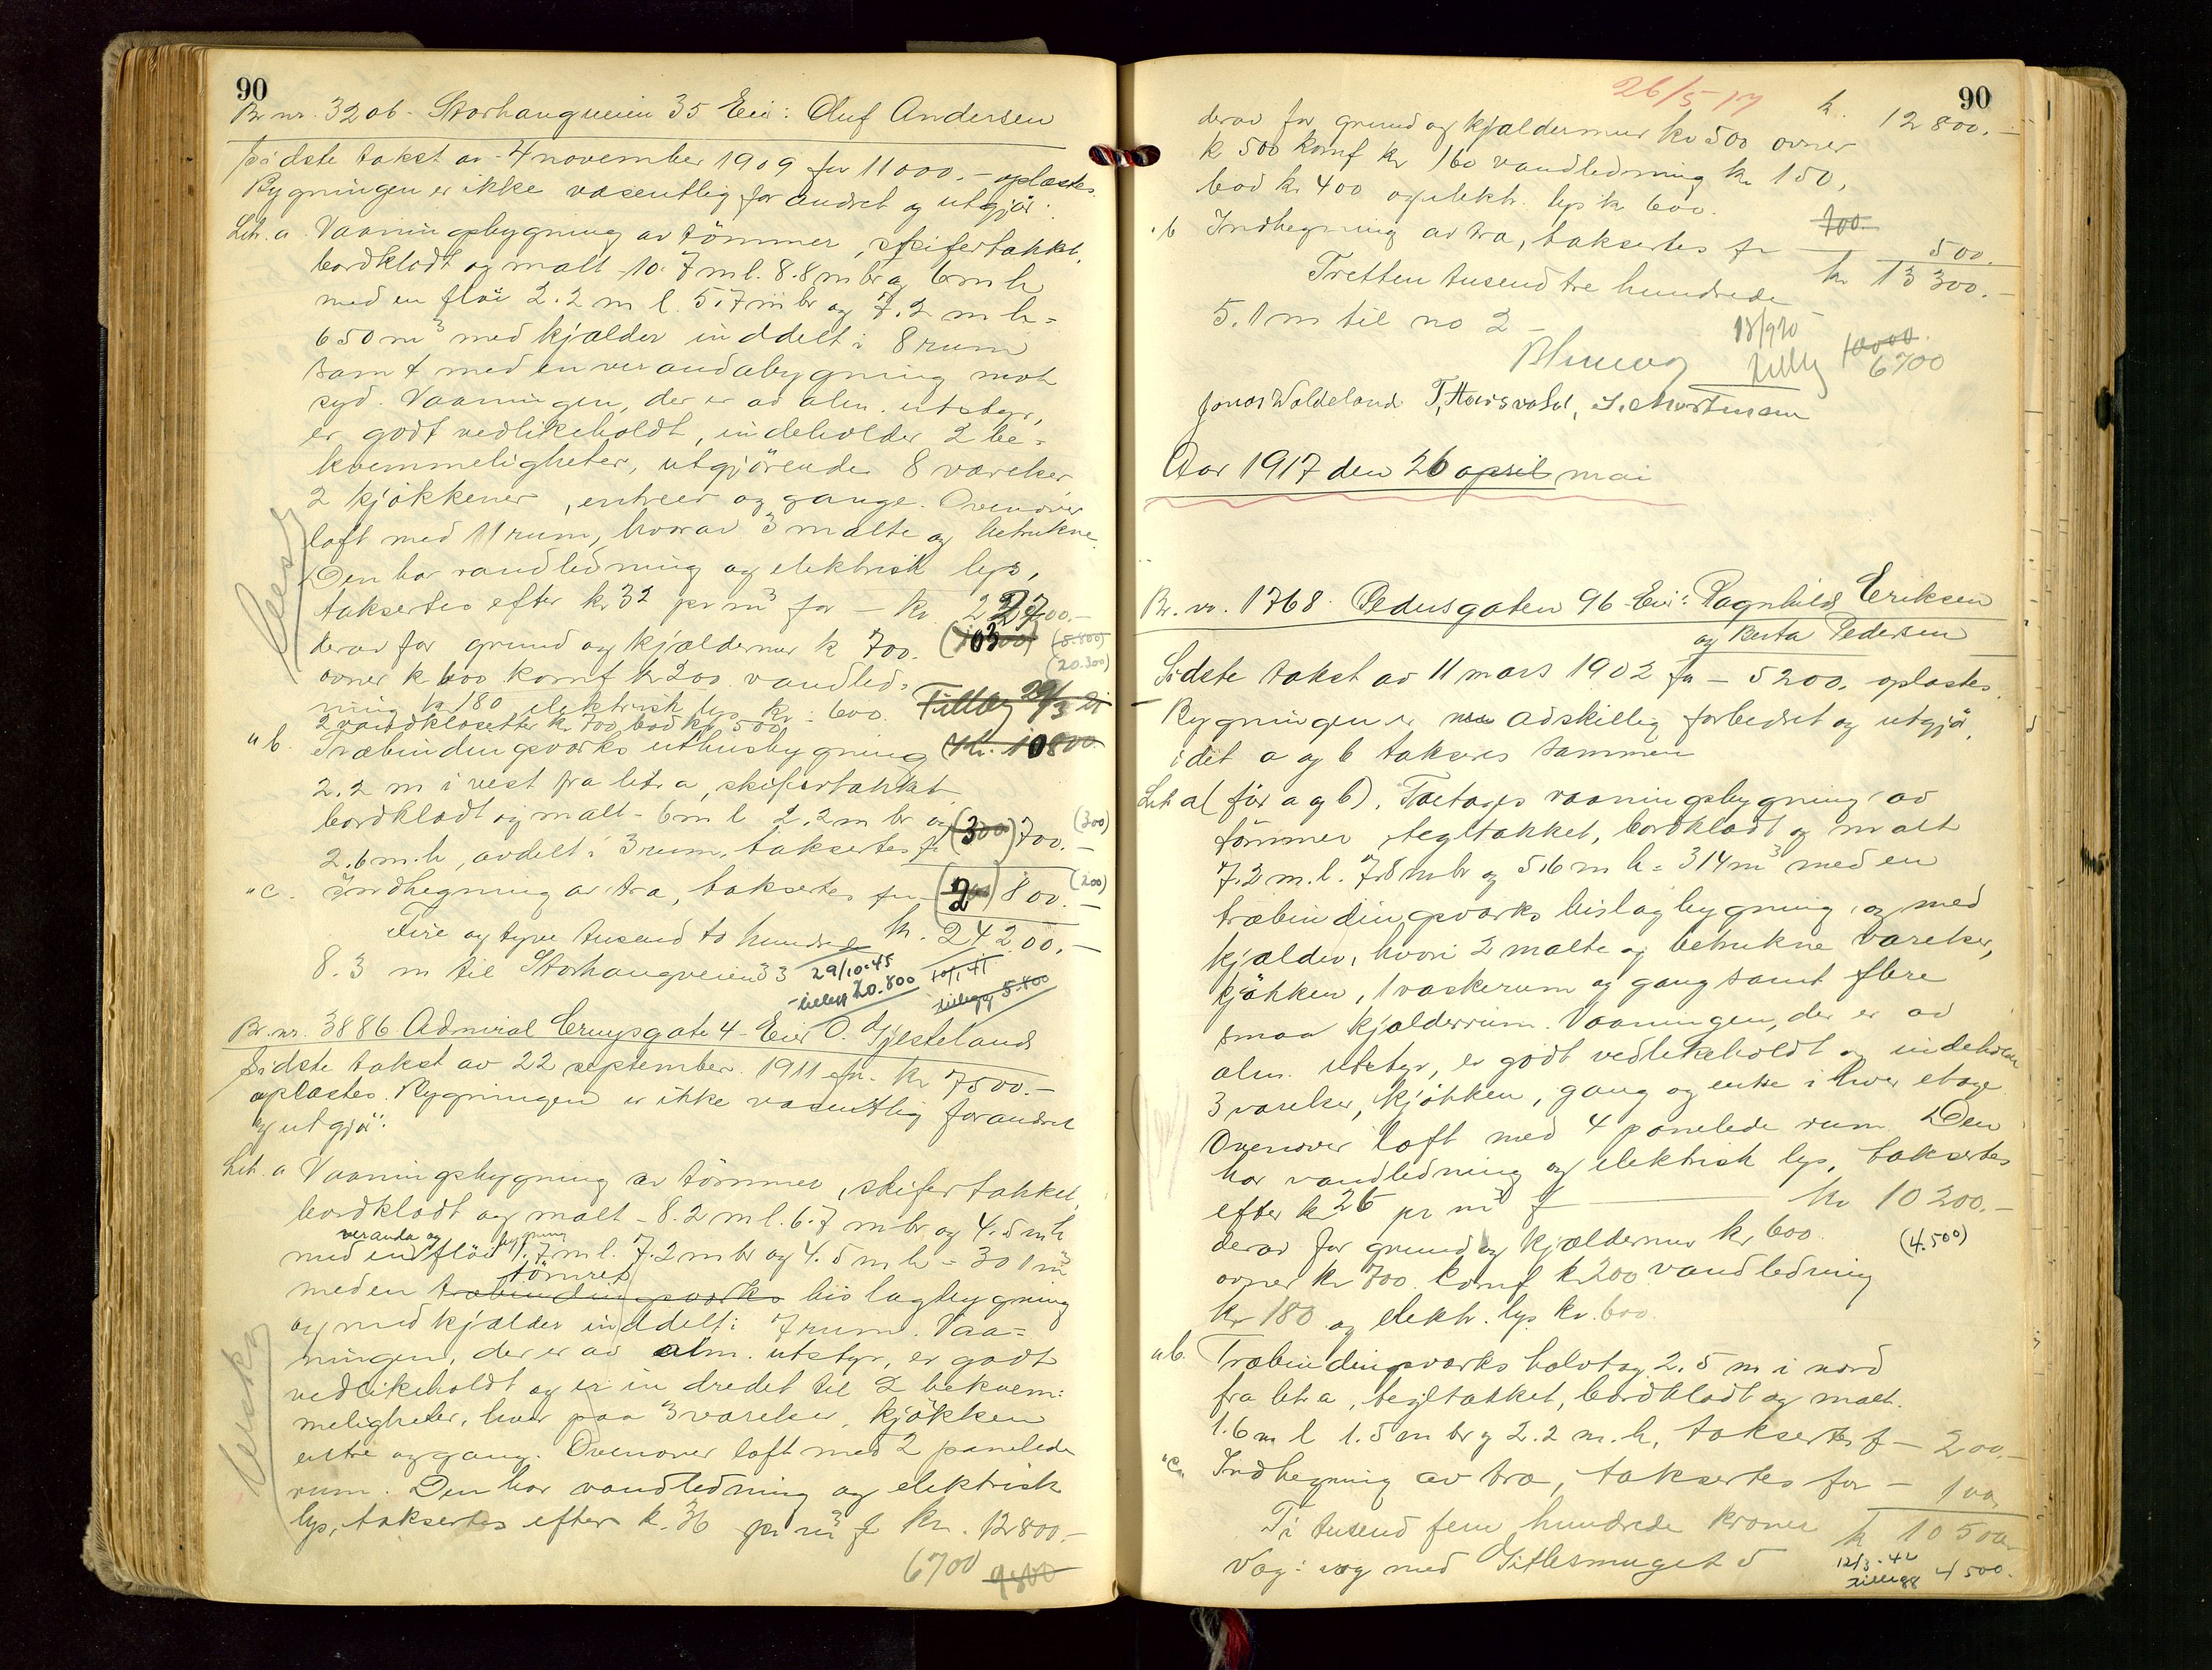 90
Br. nr. 320b - Storhaugveien 35 Eier: Oluf Andersen
Sidste takst av 4 november 1909 for 11000.- oplæstes.
Bygningen er ikke væsentlig forandret og utgjör:
Litr. a Vaaningsbygning av tömmer, skifertakket,
bordklædt og malt 10.7 m l. 8.8 m br og 6 m h
med en flöi 2.2 m l. 5.7 m br og 7.2 m h =
650 m³ med kjælder inddelt i 8 rum
samt med en verandabygning mot
syd. Vaaningen, der er av alm. utstyr,
er godt vedlikeholdt, indeholder 2 be-
kvemmeligheter, utgjörende 8 værelser
2 kjökkener, entreer og gange. Ovenover
loft med 11 rum, hvorav 3 malte og betrukne.
Den har vandledning og elektrisk lys,
taksertes efter kr 32 pr m³ for - kr. 22700.-
derav for grund og kjældermur kr 700. (5.800)
ovner kr 600 komf kr 200 vandled- (20.300)
ning kr 180 elektrisk lys kr. 600. Tillæg 29/3
2 vandklosetter kr. 700 bod kr. 500
" b. Træbindingsverks uthusbygning (kr. 10800
2.2 m i vest fra litr a, skifertakket
bordklædt og malt - 6 m l 2.2 m br og (300) (300)
2.6 m. h, avdelt i 3 rum, taksertes fr 700.-
" c. Indhegning av træ, taksertes fr. (200) 800.- (200)
Fire og tyve tusend to hundrede kr. 24200.-
8.3 m til Storhaugveien 33 29/10-45 10/1 41
tillegg 20.800 tillegg 5.800
Br. nr. 3886 Admiral Cruysgate 4 - Eier O. Gjesteland
Sidste takst av 22 september 1911 fr. kr 7500.-
oplæstes. Bygningen er ikke væsentlig forandret
og utgjör:
Litr. a Vaaningsbygning av tömmer, skifertakket
bordklædt og malt - 8.2 m l. 6.7 m br og 4.5 m h
veranda og bygning
med en flöi 1.7 m l. 7.2 m br og 4.5 m h = 301 m³
tömret
med en træbindingsverks bislagbygning
og med kjælder inddelt i 7 rum. Vaa-
ningen, der er av alm. utstyr, er godt
vedlikeholdt og er indredet til 2 bekvem-
meligheter, hver paa 3 værelser, kjökken
entre og gang. Ovenover loft med 2 panelede
rum. Den har vandledning og elektrisk
lys, taksertes efter kr. 36 pr m³ f kr. 12800.-
6700 9800
90
26/5 17
kr. 12800.-
derav for grund og kjældermur kr 500 ovner
kr 500 komf kr 160 vandledning kr 150,
bod kr 400 og elektr. lys kr 600.
" b Indhegning av træ, taksertes fr 700 500.
Tretten tusend tre hundrede kr 13300.-
5.1 m til no 2 - 18/9 20
tillæg 10000 6700
Jonas Waldeland T. Hausvold, S. Mortensen
Aar 1917 den 26 april mai
Br. nr. 1768. Pedersgaten 96 - Eier: Ragnhild Eriksen
og Berta Pedersen
Sidste takst av 11 mars 1902 fr - 5200. oplæstes.
Bygningen er adskillig forbedret og utgjör,
idet a og b takseres sammen
Litr a (för a og b). Toetages vaaningsbygning av
tömmer, tegltakket, bordklædt og malt
7.2 m. l. 7.8 m br og 5.6 m h = 314 m³ med en
træbindingsverks bislagbygning, og med
kjælder, hvori 2 malte og betrukne værelser,
kjökken, 1 vaskerum og gang samt flere
smaa kjælderrum. Vaaningen, der er av
alm. utstyr, er godt vedlikeholdt og indeholder
3 værelser, kjökken, gang og entre i hver etage
Ovenover loft med 4 panelede rum. Den
har vandledning og elektrisk lys, taksertes
efter kr 26 pr m³ f kr 10200.-
derav for grund og kjældermur kr 600. (4.500)
ovner kr 700. komf kr 200 vandledning
kr 180 og elektr. lys kr. 600
" b. Træbindingsverks halvtag 2.5 m i nord
fra litr a, tegltakket, bordklædt og malt.
1.6 m l 1.5 m br og 2.2 m. h, taksertes f - 200.-
" c. Indhegning av træ, taksertes for - 100.
Ti tusend fem hundrede kroner kr 10500
Væg i væg med Gitlesmuget 5 12/3-42
tillegg 4500.